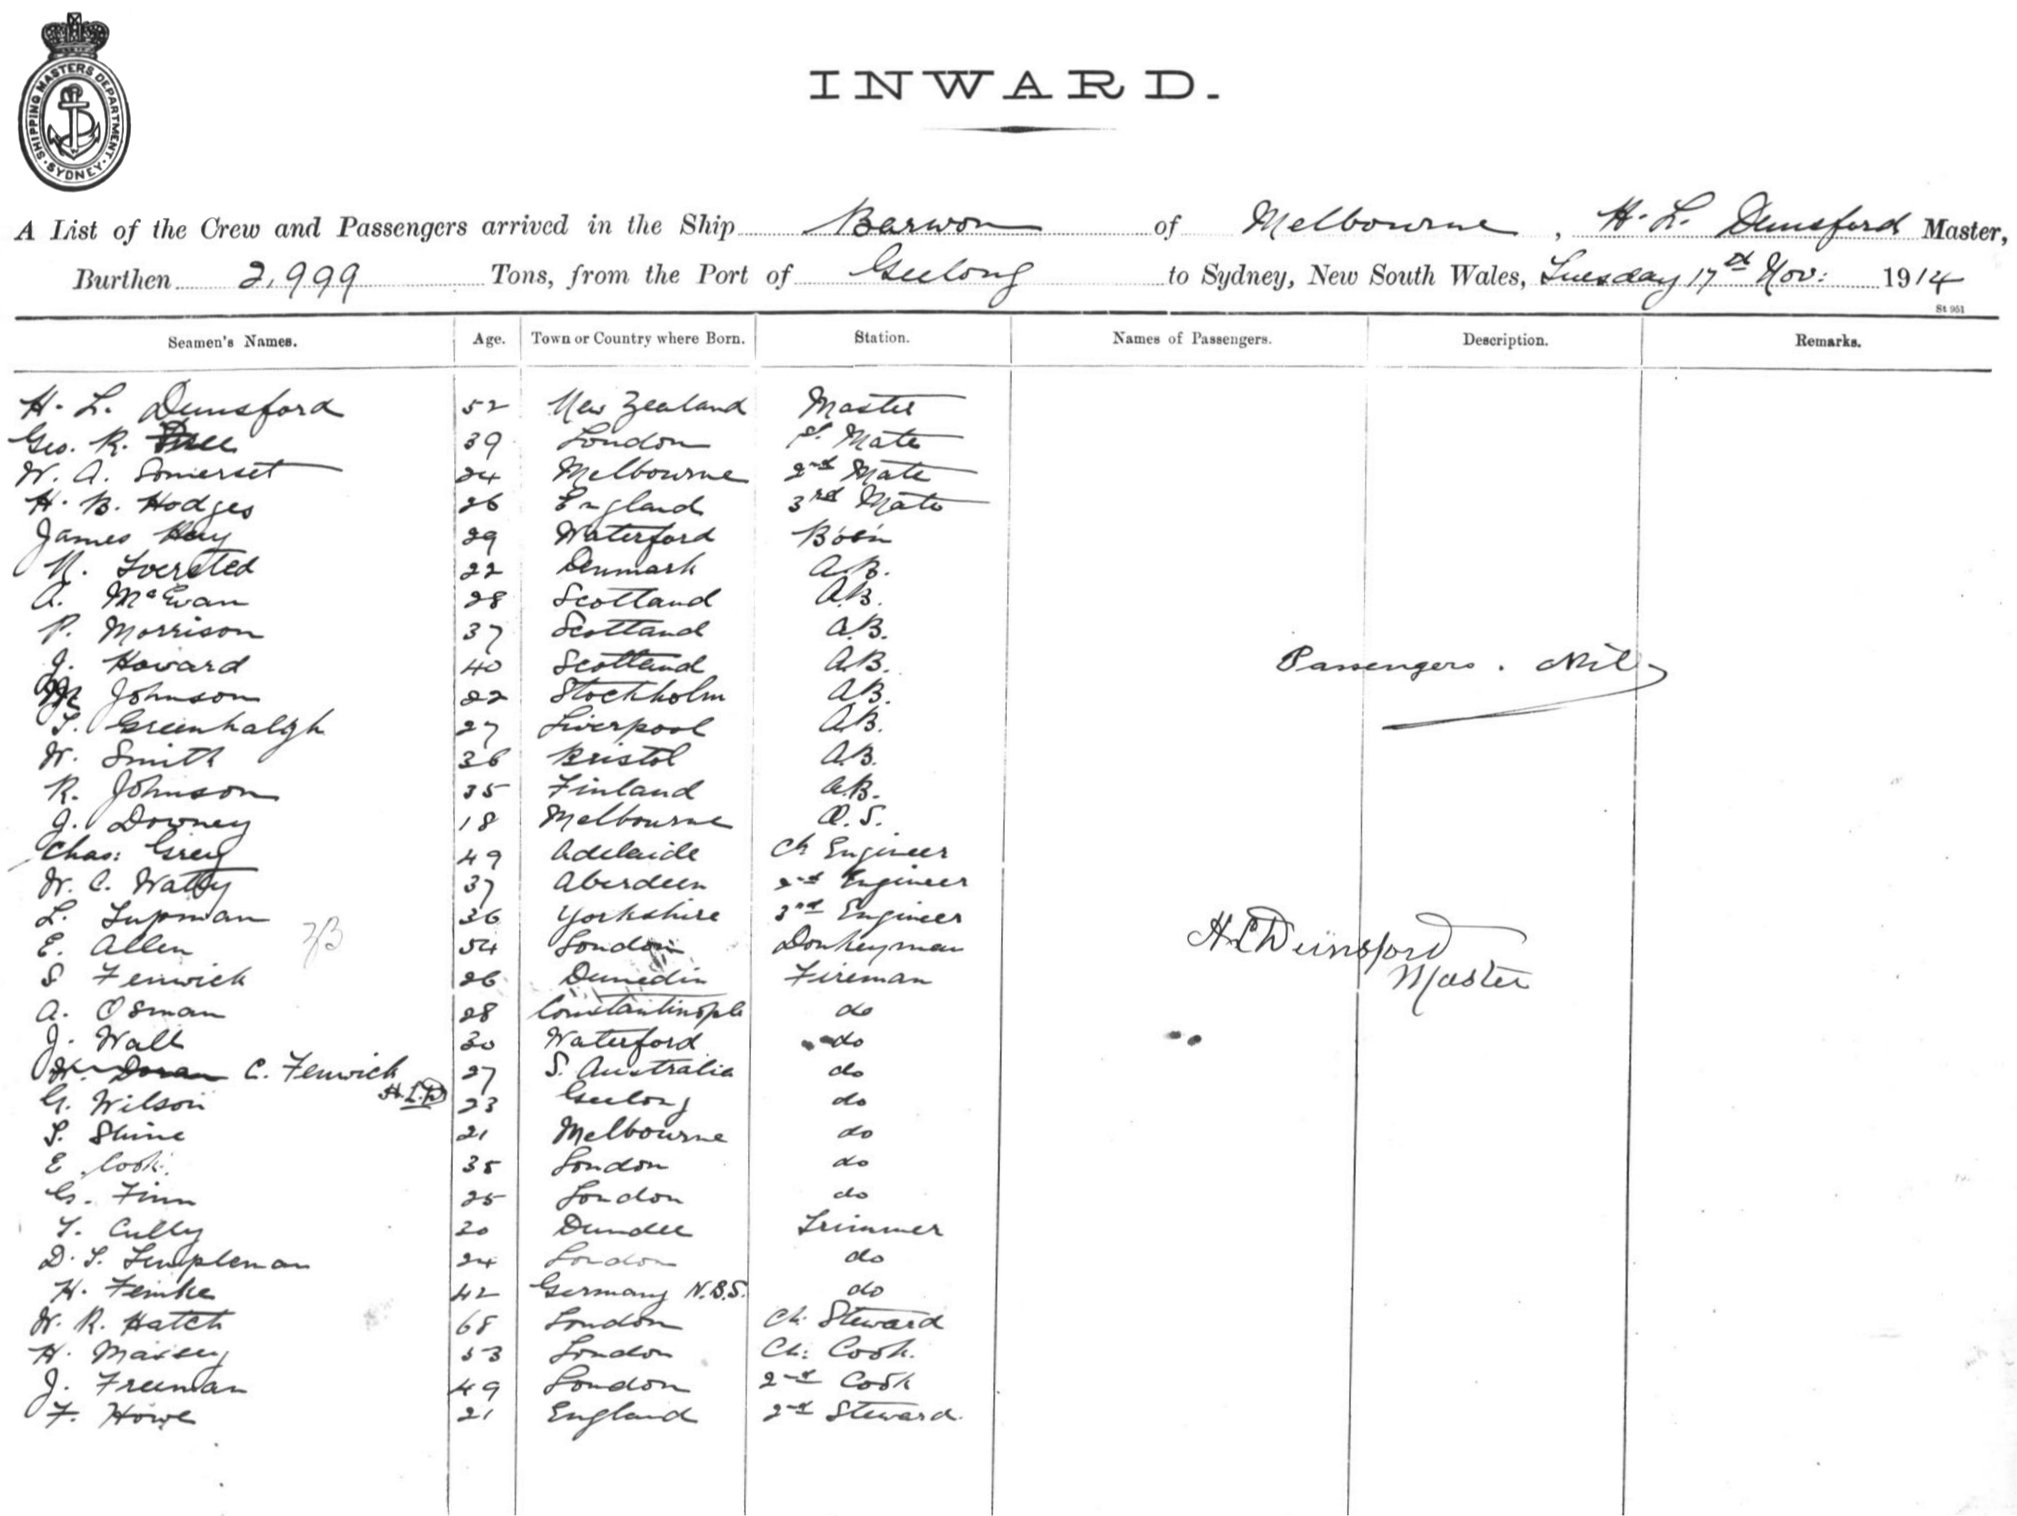 SHIPPING MASTERS DEPARTMENT · SYDNEY ·
INWARD.
A List of the Crew and Passengers arrived in the Ship Barwon of Melbourne, H. L. Dunsford Master,
Burthen 2,999 Tons, from the Port of Geelong to Sydney, New South Wales, Tuesday 17th Nov: 1914
St 951
Seamen's Names. Age. Town or Country where Born. Station. Names of Passengers. Description. Remarks.
H. L. Dunsford 52 New Zealand Master
Geo. R. 39 London 1st Mate
W. A. Somerset 24 Melbourne 2nd Mate
H. B. Hodges 26 England 3rd Mate
James Hay 29 Waterford Bo's'n
N. Iversted 22 Denmark A.B.
A. McEwan 28 Scotland A.B.
P. Morrison 37 Scotland A.B.
J. Howard 40 Scotland A.B. Passengers. Nil
Johnson 22 Stockholm A.B.
T. Greenhalgh 27 Liverpool A.B.
W. Smith 36 Bristol A.B.
R. Johnson 35 Finland A.B.
J. Downey 18 Melbourne O.S.
Chas: Greig 49 Adelaide Ch Engineer
W. C. Watty 37 Aberdeen 2nd Engineer
L. Tupman 36 Yorkshire 3rd Engineer
E. Allen 54 London Donkeyman H L Dunsford
S Fenwick 26 Dunedin Fireman Master
A. Osman 28 Constantinople do
J. Wall 30 Waterford do
W. Doran C. Fenwick 27 S. Australia do
H.L.D
G. Wilson 23 Geelong do
S. Shine 21 Melbourne do
E. Cook. 35 London do
G. Finn 25 London do
T. Cully 20 Dundee Trimmer
D. S. Templeman 24 London do
H. Femke 42 Germany N.B.S. do
W. R. Hatch 68 London Ch. Steward
H. Massey 53 London Ch: Cook.
J. Freeman 49 London 2nd Cook
F. Howe 21 England 2nd Steward.